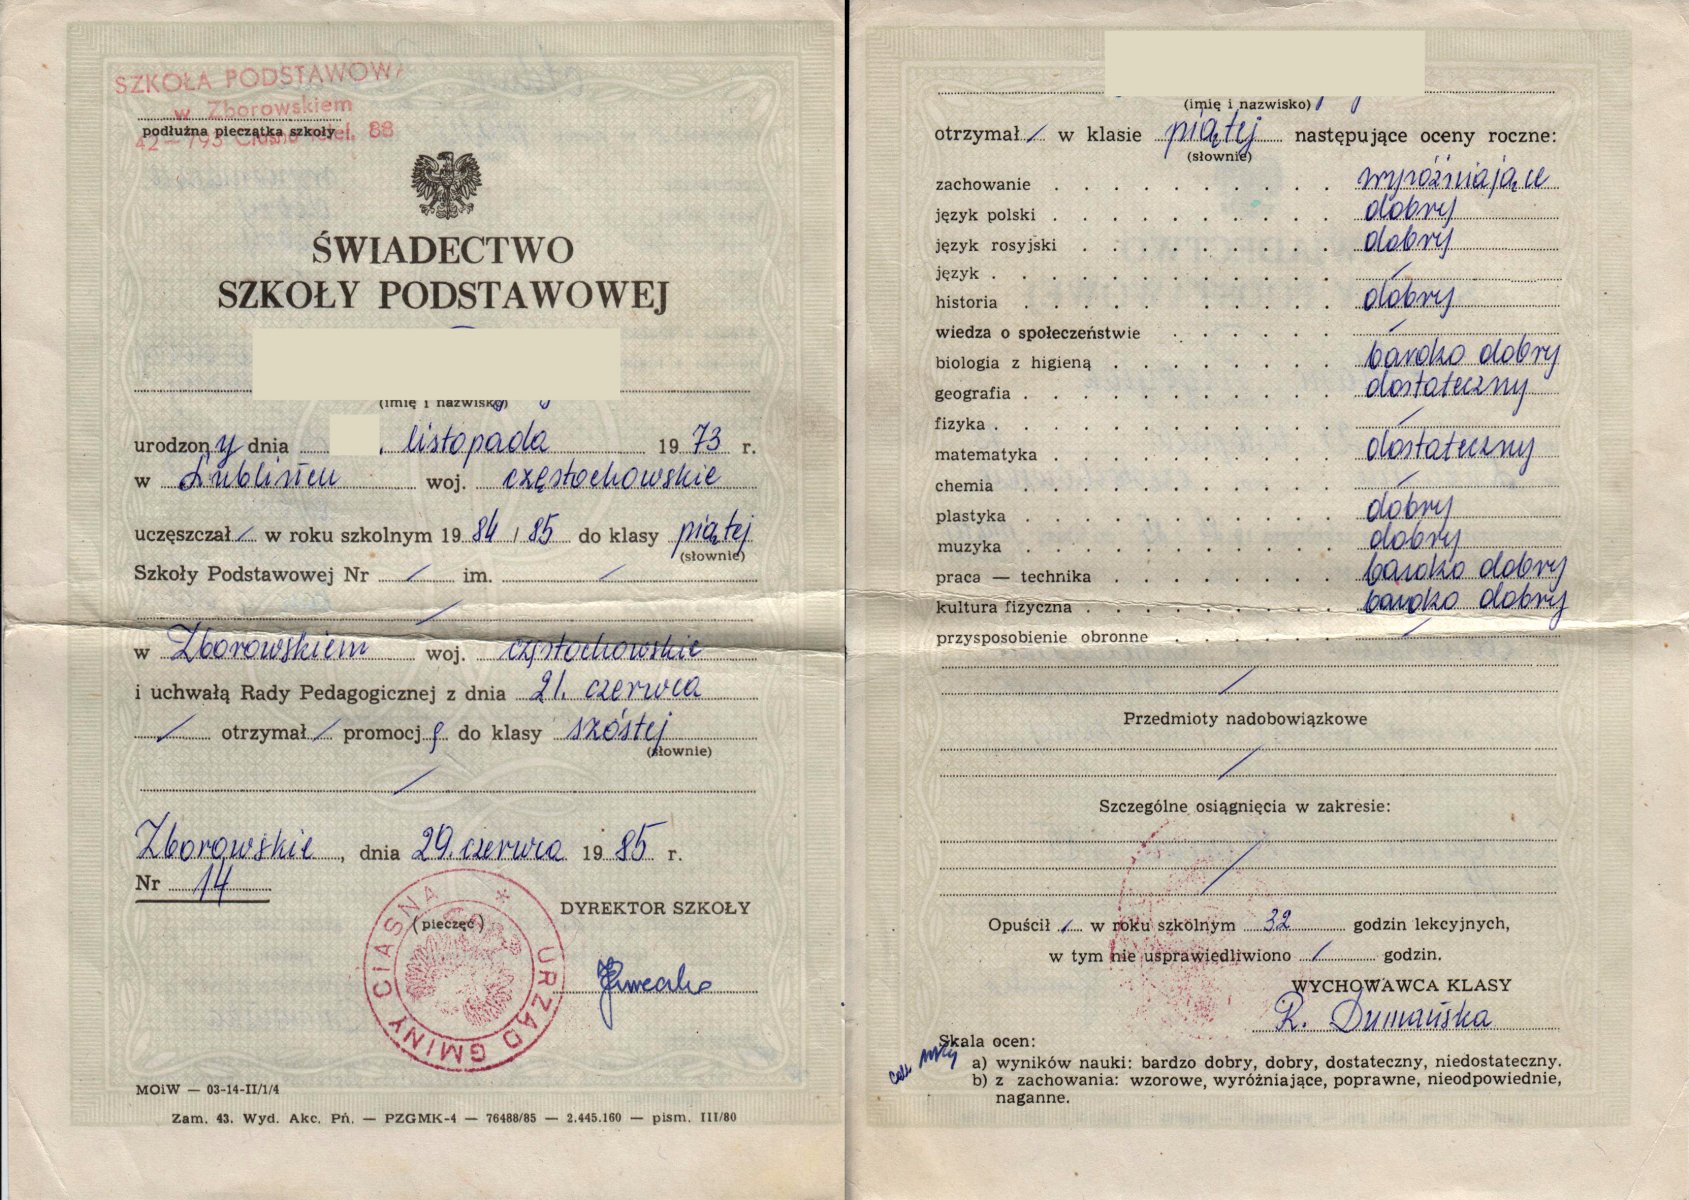 SZKOŁA PODSTAWOWA
w Zborowskiem
podłużna pieczątka szkoły
42-793 Ciasna tel. 88
ŚWIADECTWO
SZKOŁY PODSTAWOWEJ
(imię i nazwisko)
urodzony dnia . listopada 1973 r.
w Lublińcu woj. częstochowskie
uczęszczał / w roku szkolnym 1984/85 do klasy piątej
(słownie)
Szkoły Podstawowej Nr / im. /
/
w Zborowskiem woj. częstochowskie
i uchwałą Rady Pedagogicznej z dnia 21. czerwca
/ otrzymał / promocję do klasy szóstej
(słownie)
/
Zborowskie, dnia 29. czerwca 1985 r.
Nr 14
DYREKTOR SZKOŁY
(pieczęć)
URZĄD GMINY CIASNA *
MOiW — 03-14-II/1/4
Zam. 43. Wyd. Akc. Pń. — PZGMK-4 — 76488/85 — 2.445.160 — pism. III/80
(imię i nazwisko)
otrzymał / w klasie piątej następujące oceny roczne:
(słownie)
zachowanie . . . . . . . . . . wyróżniające
język polski . . . . . . . . . . dobry
język rosyjski . . . . . . . . . dobry
język . . . . . . . . . . . . /
historia . . . . . . . . . . . dobry
wiedza o społeczeństwie . . . . . . /
biologia z higieną . . . . . . . . bardzo dobry
geografia . . . . . . . . . . . dostateczny
fizyka . . . . . . . . . . . . /
matematyka . . . . . . . . . . dostateczny
chemia . . . . . . . . . . . /
plastyka . . . . . . . . . . . dobry
muzyka . . . . . . . . . . . dobry
praca — technika . . . . . . . . bardzo dobry
kultura fizyczna . . . . . . . . . bardzo dobry
przysposobienie obronne . . . . . . /
/
Przedmioty nadobowiązkowe
/
Szczególne osiągnięcia w zakresie:
/
Opuścił / w roku szkolnym 32 godzin lekcyjnych,
w tym nie usprawiedliwiono / godzin.
WYCHOWAWCA KLASY
R. Dumańska
Skala ocen:
a) wyników nauki: bardzo dobry, dobry, dostateczny, niedostateczny.
b) z zachowania: wzorowe, wyróżniające, poprawne, nieodpowiednie,
naganne.